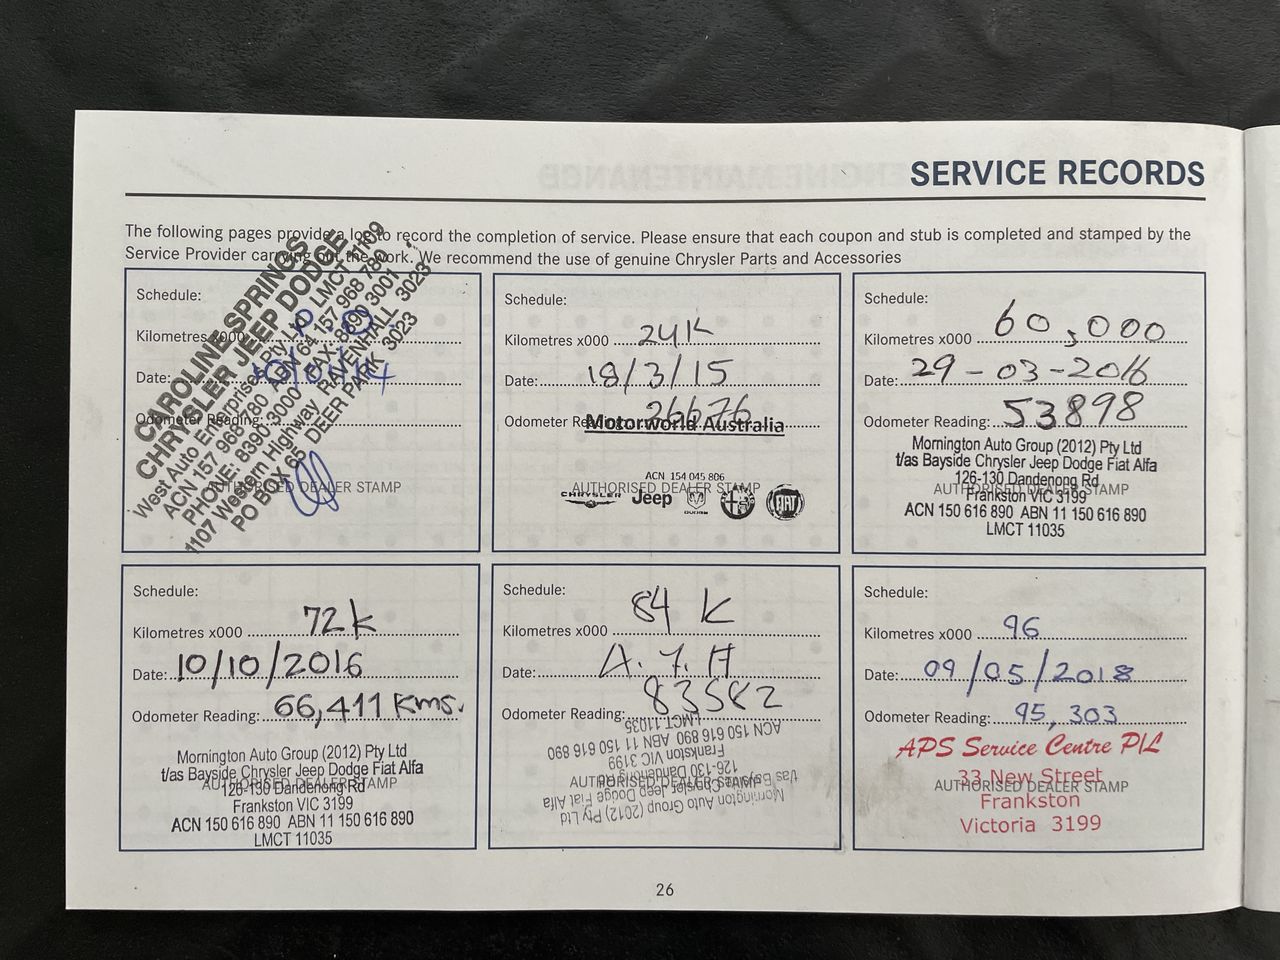 SERVICE RECORDS
The following pages provide a log to record the completion of service. Please ensure that each coupon and stub is completed and stamped by the
Service Provider carrying out the work. We recommend the use of genuine Chrysler Parts and Accessories
Schedule:
Kilometres x000
Date:
Odometer Reading:
AUTHORISED DEALER STAMP
CAROLINE SPRINGS
CHRYSLER JEEP DODGE
West Auto Enterprises Pty Ltd LMCT 11109
ACN 157 968 780 ABN 64 157 968 780
PHONE: 8390 3000 FAX: 8390 3001
1107 Western Highway RAVENHALL 3023
PO BOX 65 DEER PARK 3023
Schedule:
Kilometres x000 24K
Date: 18/3/15
Odometer Reading: 26676
Motorworld Australia
ACN 154 045 806
AUTHORISED DEALER STAMP
CHRYSLER Jeep DODGE FIAT
Schedule:
Kilometres x000 60,000
Date: 29-03-2016
Odometer Reading: 53898
Mornington Auto Group (2012) Pty Ltd
t/as Bayside Chrysler Jeep Dodge Fiat Alfa
126-130 Dandenong Rd
AUTHORISED DEALER STAMP
Frankston VIC 3199
ACN 150 616 890 ABN 11 150 616 890
LMCT 11035
Schedule:
Kilometres x000 72k
Date: 10/10/2016
Odometer Reading: 66,411 kms.
Mornington Auto Group (2012) Pty Ltd
t/as Bayside Chrysler Jeep Dodge Fiat Alfa
AUTHORISED DEALER STAMP
126-130 Dandenong Rd
Frankston VIC 3199
ACN 150 616 890 ABN 11 150 616 890
LMCT 11035
Schedule:
Kilometres x000 84 K
Date:
Odometer Reading: 83582
AUTHORISED DEALER STAMP
Mornington Auto Group (2012) Pty Ltd
t/as Bayside Chrysler Jeep Dodge Fiat Alfa
126-130 Dandenong Rd
Frankston VIC 3199
ACN 150 616 890 ABN 11 150 616 890
LMCT 11035
Schedule:
Kilometres x000 96
Date: 09/05/2018
Odometer Reading: 95,303
APS Service Centre P/L
33 New Street
AUTHORISED DEALER STAMP
Frankston
Victoria 3199
26